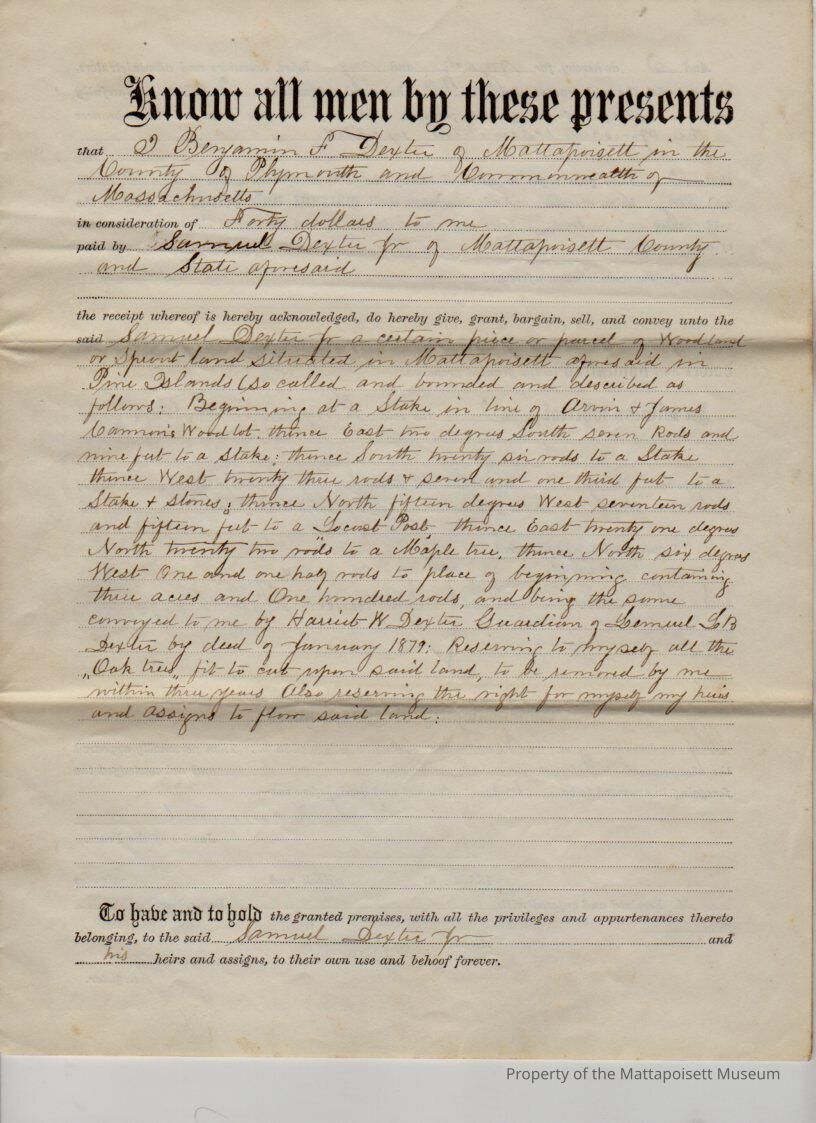 Know all men by these presents
that I Benjamin F Dexter of Mattapoisett in the
County of Plymouth and Commonwealth of
Massachusetts
in consideration of Forty dollars to me
paid by Samuel Dexter Jr of Mattapoisett County
and State aforesaid
the receipt whereof is hereby acknowledged, do hereby give, grant, bargain, sell, and convey unto the
said Samuel Dexter Jr a certain piece or parcel of Woodland
or Sprout land situated in Mattapoisett aforesaid in
Pine Islands (so called and bounded and described as
follows: Beginning at a Stake in line of Arvin & James
Cannon's Wood lot. thence East two degrees South seven Rods and
nine feet to a Stake: thence South twenty six rods to a Stake
thence West twenty three rods & seven and one third feet to a
Stake & stones; thence North fifteen degrees West seventeen rods
and fifteen feet to a Locust Post thence East twenty one degrees
North twenty two rods to a Maple tree, thence North six degrees
West One and one half rods to place of beginning containing
three acres and One hundred rods, and being the same
conveyed to me by Harriet W Dexter Guardian of Lemuel L B
Dexter by deed of January 1879: Reserving to myself all the
"Oak trees" fit to cut upon said land, to be removed by me
within three years Also reserving the right for myself my heirs
and assigns to flow said land:
To have and to hold the granted premises, with all the privileges and appurtenances thereto
belonging, to the said Samuel Dexter Jr and
his heirs and assigns, to their own use and behoof forever.
Property of the Mattapoisett Museum